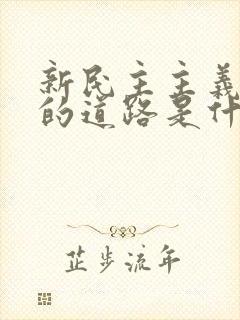 新民主主義
的道路是什
芷步流年